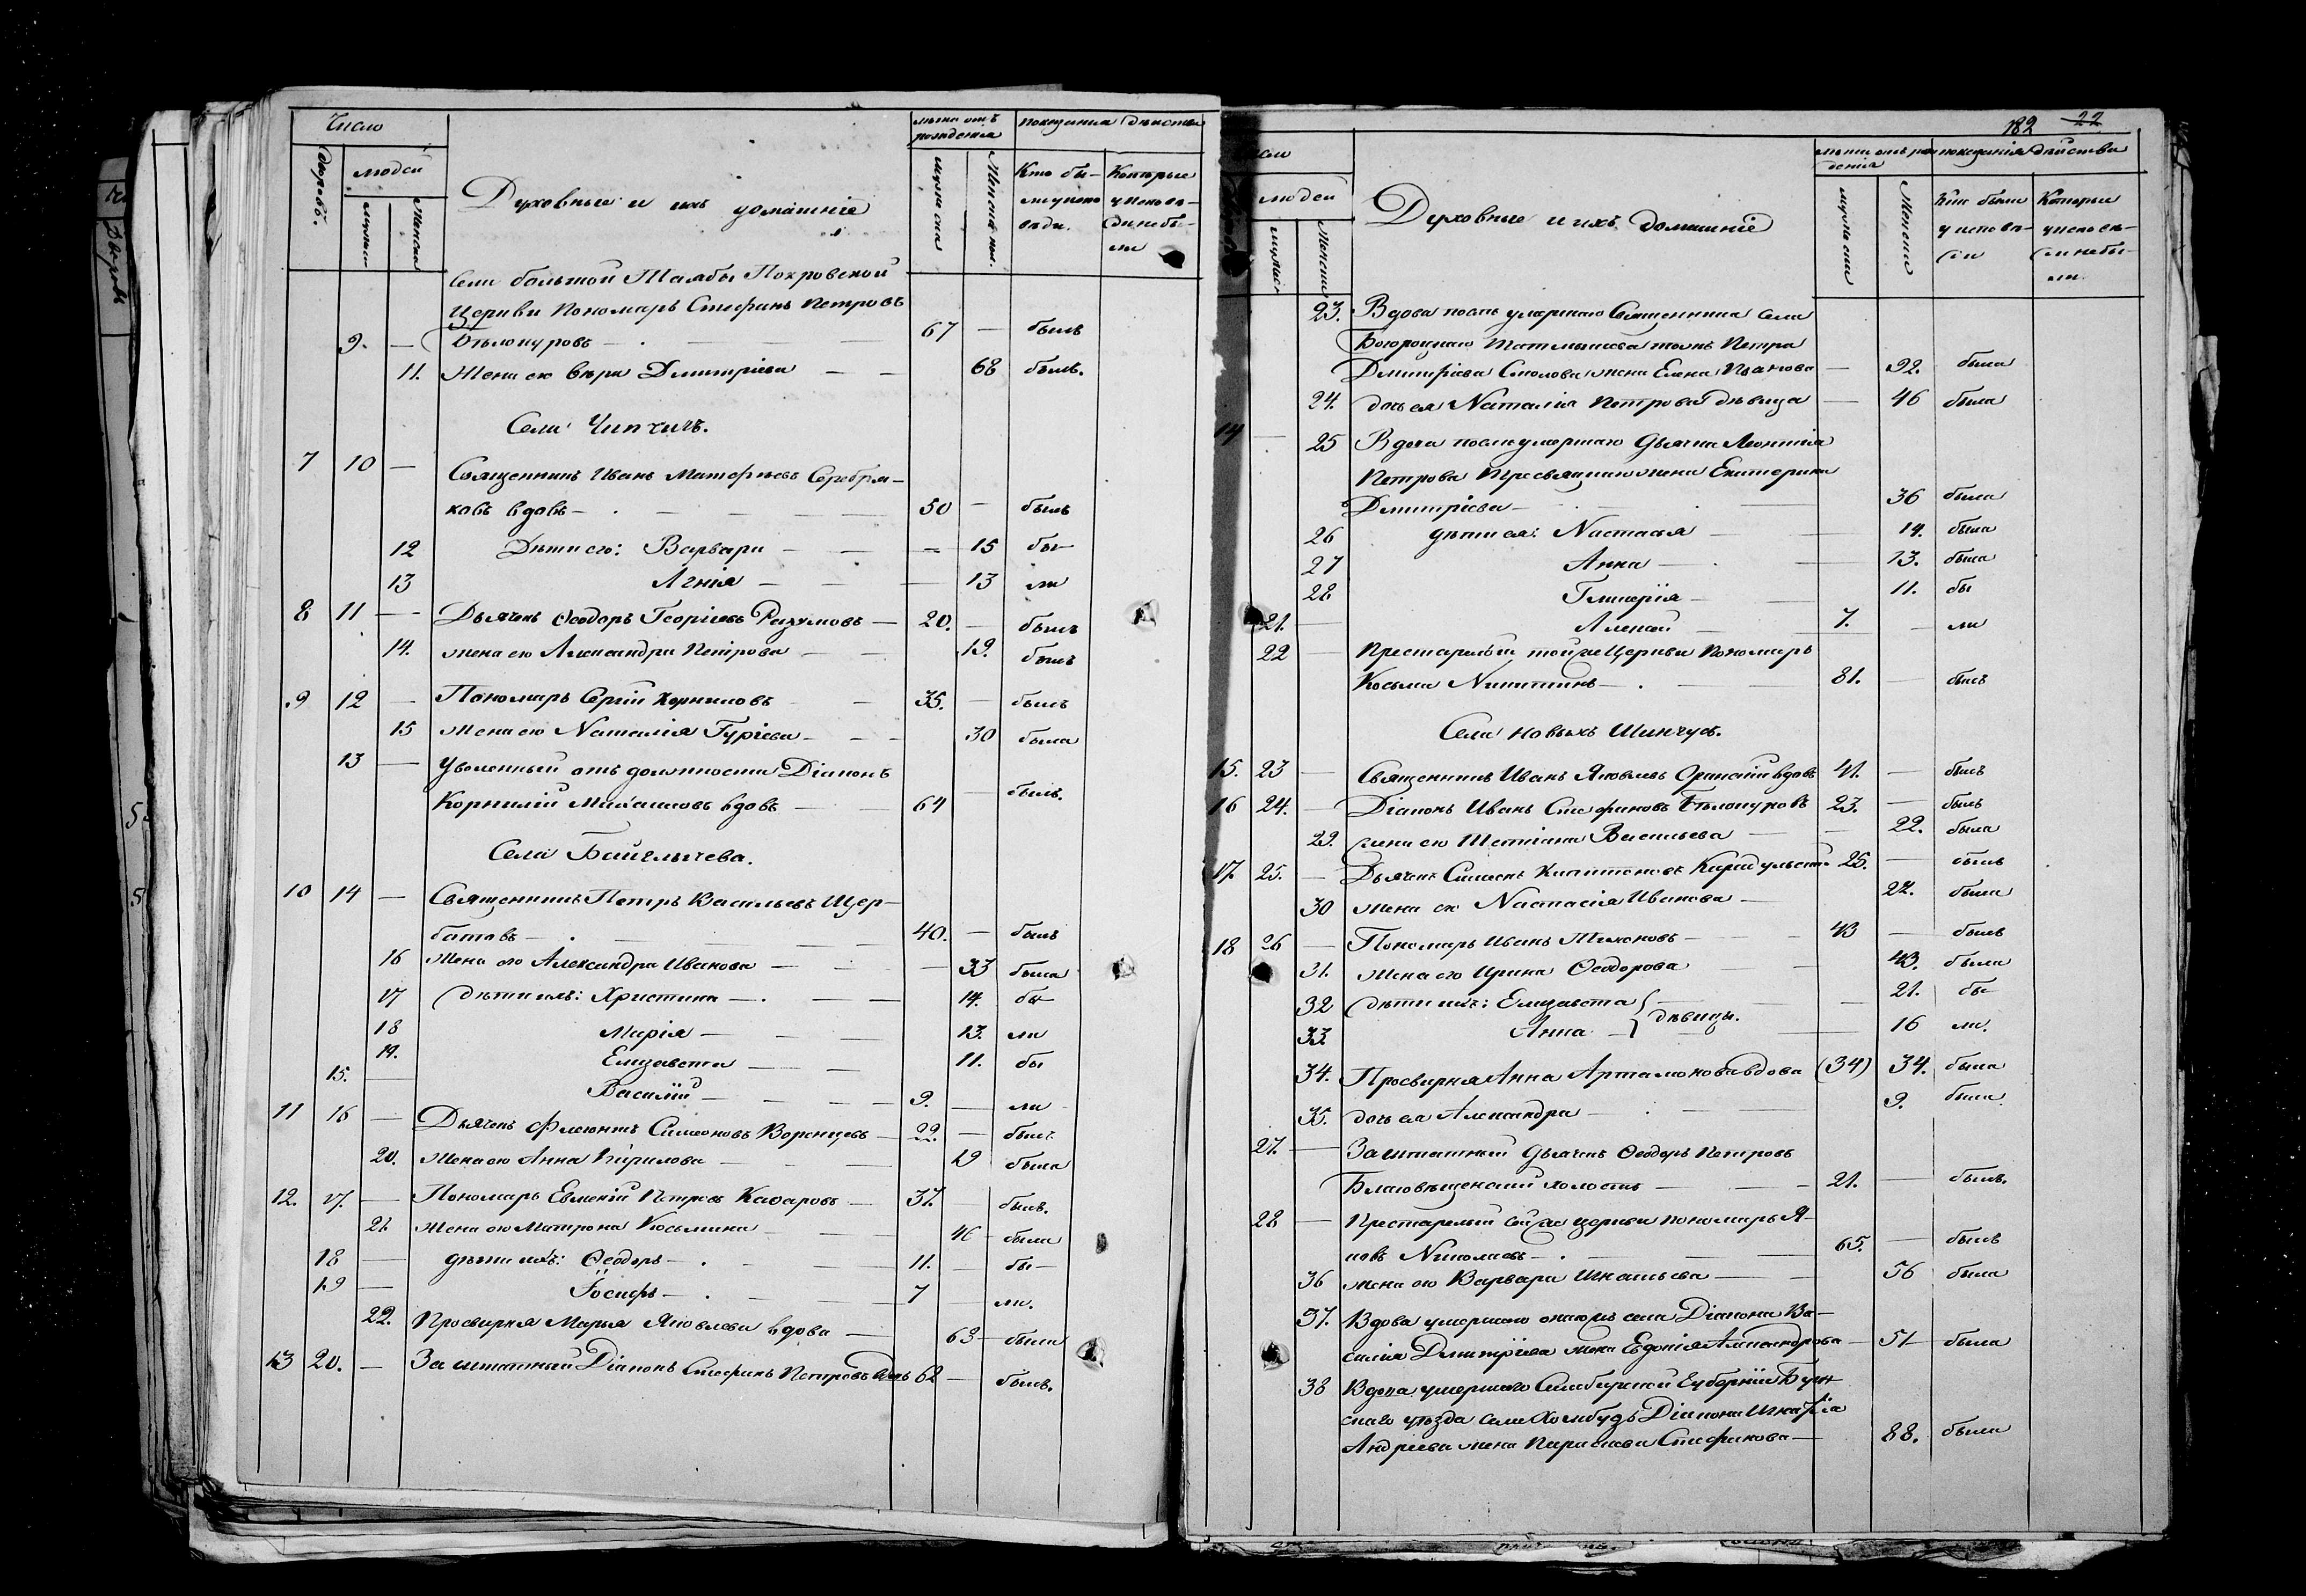 Число
Дворовъ.
людей
мужеск
Женска
Духовные и ихъ домашніе
лѣта отъ рожденія
мужеска
Женска пол.
показанія дѣйства
Кто были у исповѣди.
Которые у исповѣди не были
Села большой Таябы Покровской
Церкви Пономарь Стефанъ Петровъ
9. — Бѣлокуровъ — 67 — былъ
11. Жена его Вѣра Димитріева — 68 была.
Села Чипчигъ.
7 10 — Священникъ Иванъ Матфѣевъ Серебря-
ковъ вдовъ — 50 — былъ
12 Дѣти его: Варвара — 15 бы-
13 Агнія — 13 ли
8 11 — Дьячекъ Ѳеодоръ Георгіевъ Разумовъ — 20. — былъ
14. жена его Александра Петрова — 19. былъ
9 12 — Пономарь Сергій Корниловъ — 35. — былъ
15 жена его Наталія Гурьева — 30 была
13 — Уволенный отъ должности Діаконъ
Корнилій Михаиловъ вдовъ — 64 — былъ.
Села Байглычева.
10 14 — Священникъ Петръ Васильевъ Щер-
батовъ — 40. — былъ
16 Жена его Александра Иванова — 33 была
17 дѣти ихъ: Христина — 14. бы-
18 Марія — 13. ли
19. Елизавета — 11. бы
15. — Василій — 9. — ли
11 16 — Дьячекъ Флегонтъ Симеоновъ Воронцовъ — 22. — былъ
20. Жена его Анна Кирилова — 19 была
12. 17. — Пономарь Евгеній Петровъ — 37. — былъ.
21. Жена его Матрона Косьмина — 40 — была
18 — дѣти ихъ: Ѳеодоръ — 11. — бы-
19 — Іосифъ — 7 — ли.
22. Просвирня Марья Яковлева вдова — 63 — была
13 20. — Заштатный Діаконъ Стефанъ Петровъ вдовъ 62 — былъ.
182 22
людей
мужес
Женска
Духовные и ихъ домашніе
лѣта отъ рождения
мужеска
Женска
показанія дѣйства
Кто были у исповѣди
Которые у исповѣди не были.
23. Вдова послѣ умершаго Священника села
Богородскаго Петра
Димитріева Смолова жена Елена Иванова — 92. была
24. дочь ея Наталія Петрова дѣвица — 46 была
14 — 25 Вдова послѣ умершаго Дьячка Леонтія
Петрова жена Екатерина
Димитріева — 36 была
26 дѣти ея: Настасья — 14. была
27 Анна — 13. была
28 Гликерія — 11. бы
21. — Алексѣй — 7. — ли
22 — Престарелый той же Церкви Пономарь
Косьма Никитинъ — 81. — былъ
Села Новыхъ Шинчусъ.
15. 23 — Священникъ Иванъ Яковлевъ вдовъ 41. — былъ
16 24. — Діаконъ Иванъ Стефановъ Бѣлокуровъ 23. — былъ
29. жена его Татіана Васильева — 22. была
17. 25. — Дьячекъ Симеонъ Капитоновъ 25. — былъ
30 жена его Настасія Иванова — 22. была
18 26 — Пономарь Иванъ Тихоновъ — 43 — былъ
31. Жена его Ирина Ѳеодорова — 43. была
32 дѣти ихъ: Елизавета — 21. бы-
33. Анна — } дѣвицы. — 16 ли.
34. Просвирня Анна Артамонова вдова (34) 34. была
35. дочь ея Александра — 9. была
27. — Заштатный Дьячекъ Ѳеодоръ Петровъ
Благовѣщенскій холостъ — 21. — былъ.
28 — Престарелый сей же церкви пономарь Я-
ковъ Николаевъ — 65. — былъ
36 жена его Варвара Игнатьева — 56 была
37. Вдова умершаго онаго жъ села Діакона Ва-
силія Димитріева жена Евдокія Александрова — 51 — была
38 Вдова умершаго Симбирской Губерніи Буин-
скаго уѣзда села Хомбузъ Діакона Игнатія
Андреева жена Параскева Стефанова — 88. была